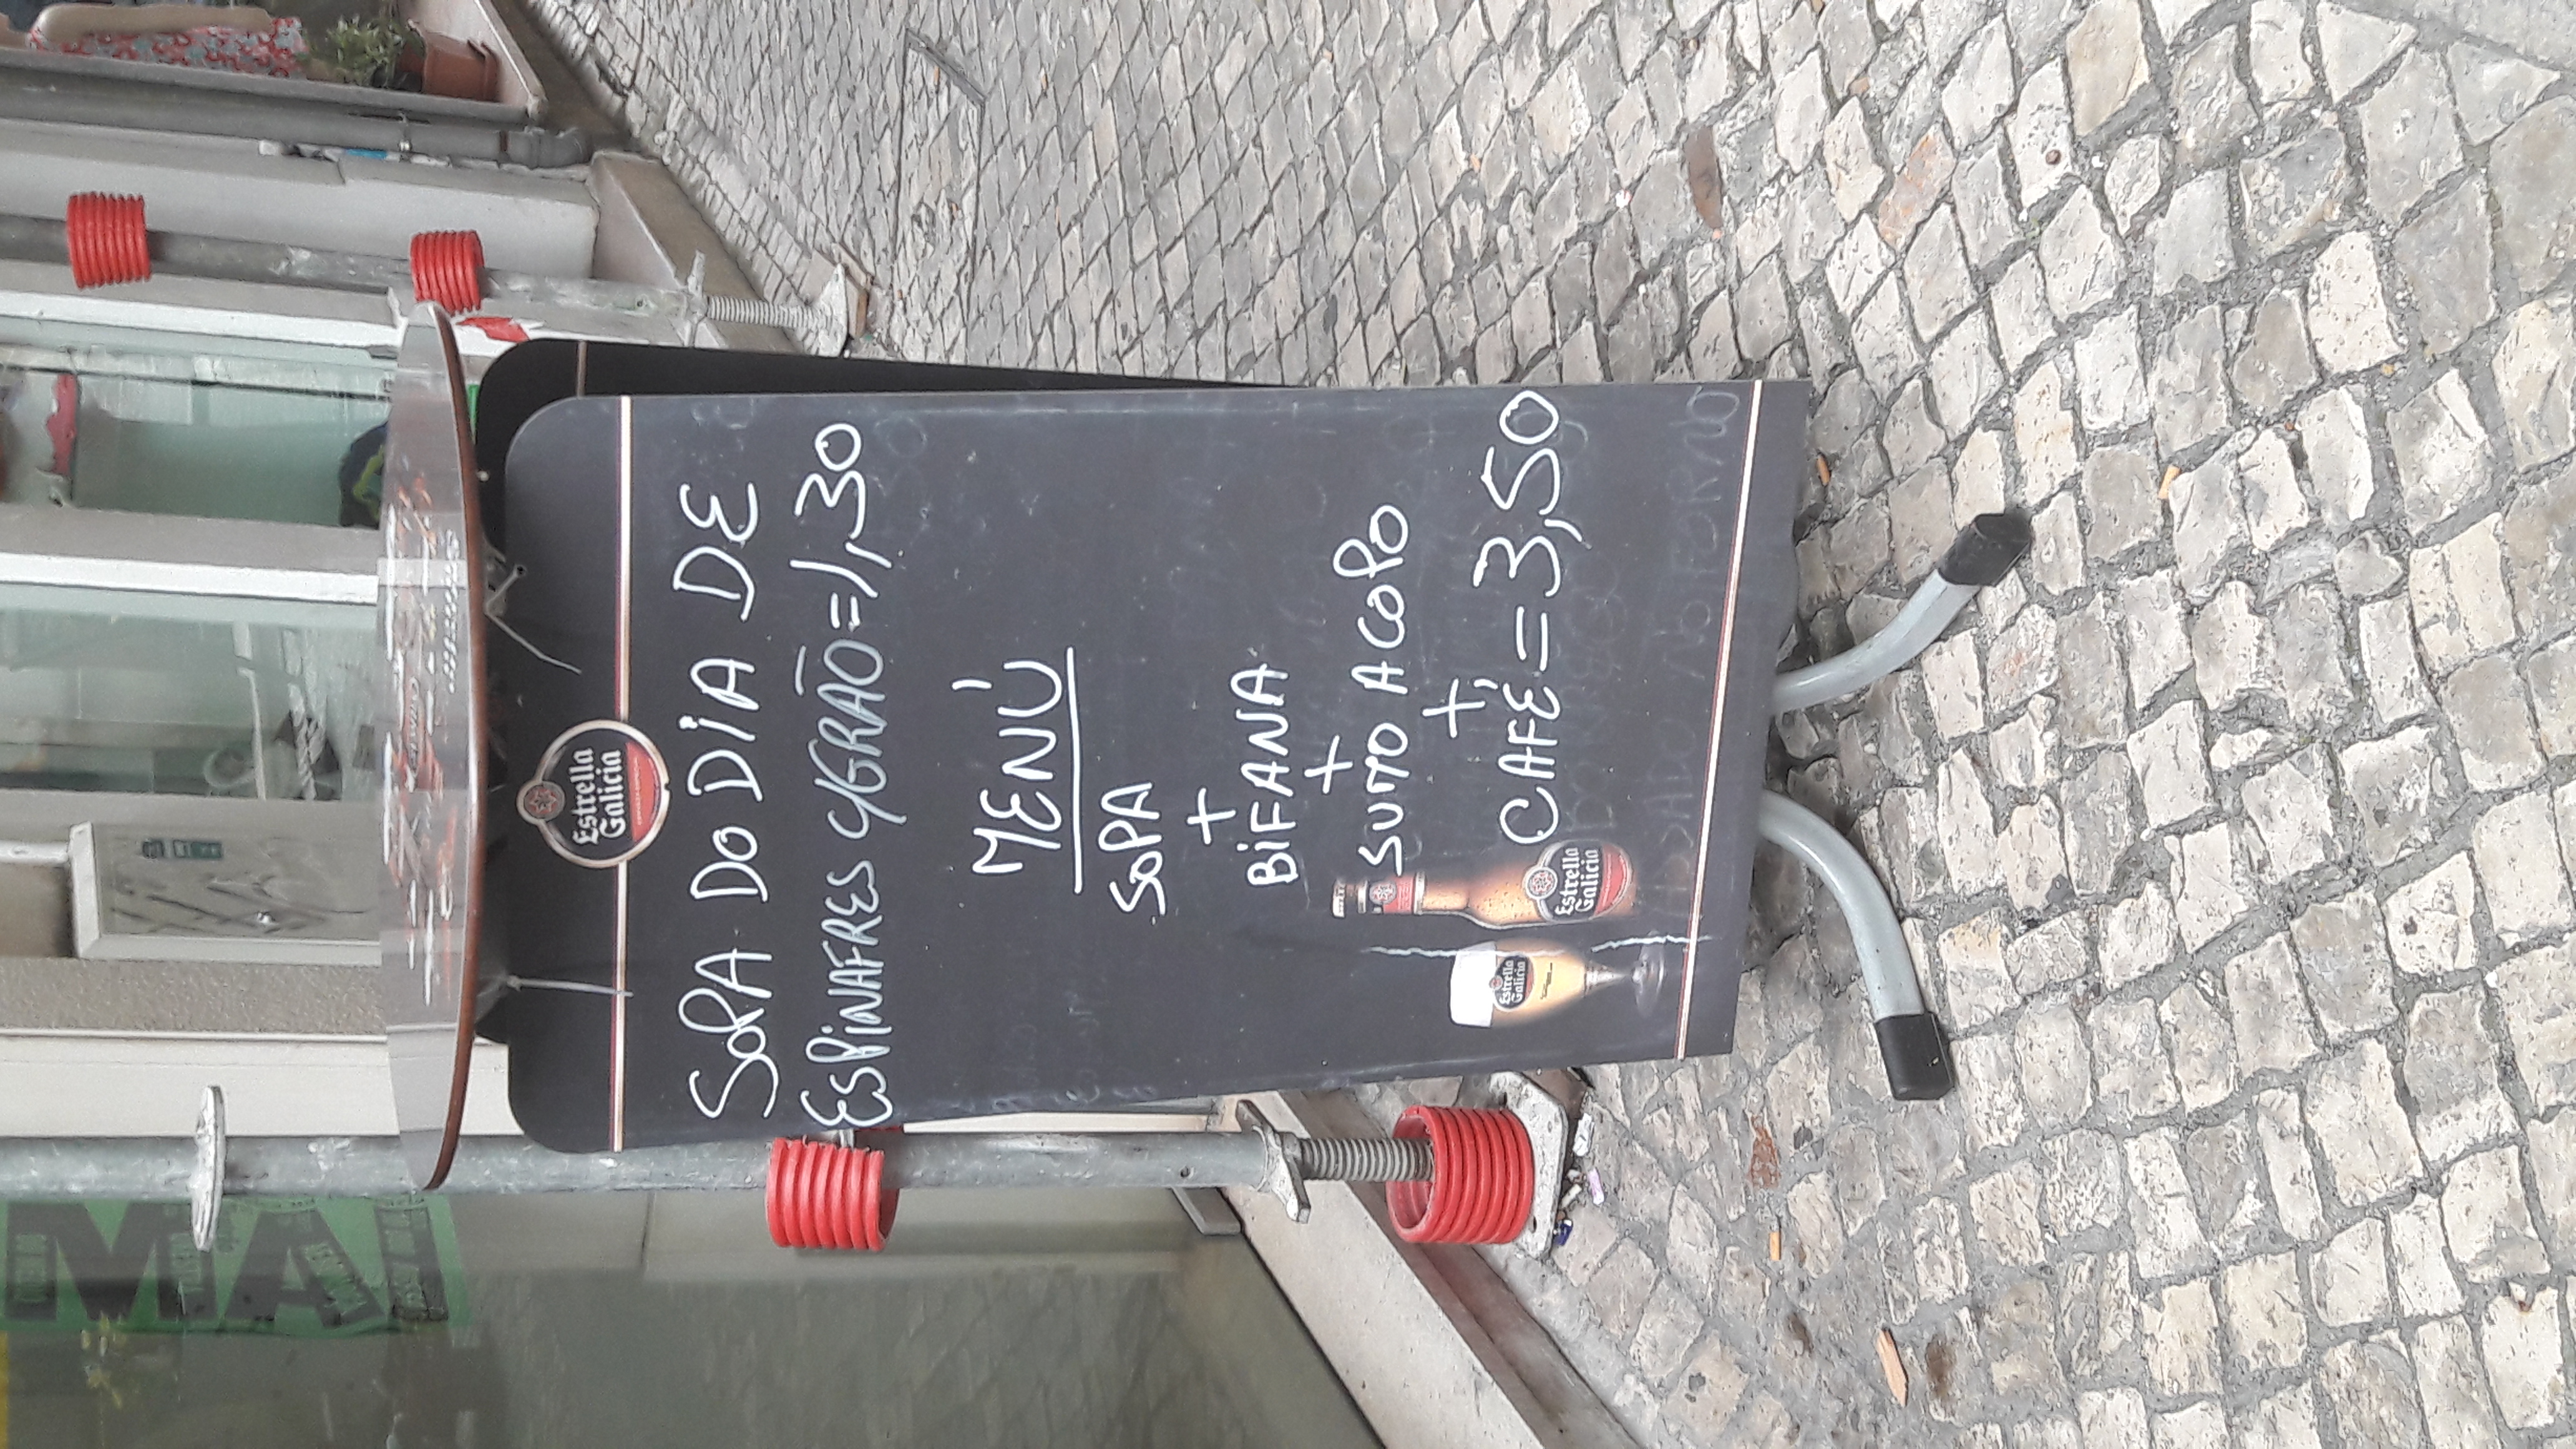 Estrella
Galicia
SOPA DO DIA DE
ESPINAFRES C/GRÃO=1,30
MENÚ
SOPA
+
BIFANA
+
SUMO A COPO
+
CAFÉ=3,50
Estrella
Galicia
Estrella
Galicia
MAI